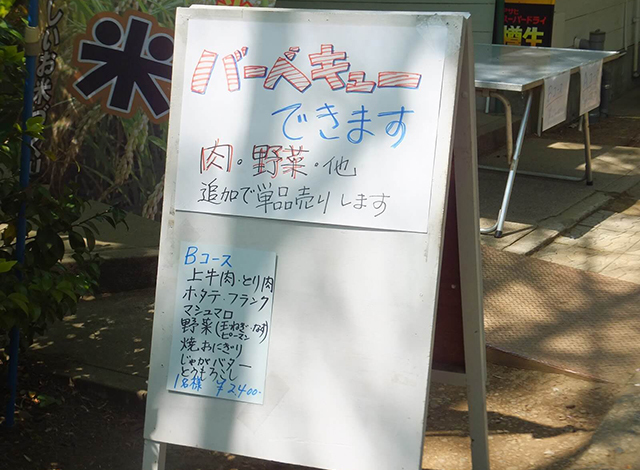 しいお米
米
スーパードライ
樽生
バーベキュー
できます
肉・野菜・他
追加で単品売りします
Bコース
上牛肉・とり肉
ホタテ・フランク
マシュマロ
野菜(玉ねぎ・なす
ピーマン
焼おにぎり
じゃがバター
とうもろこし
1名様 ¥2,400-